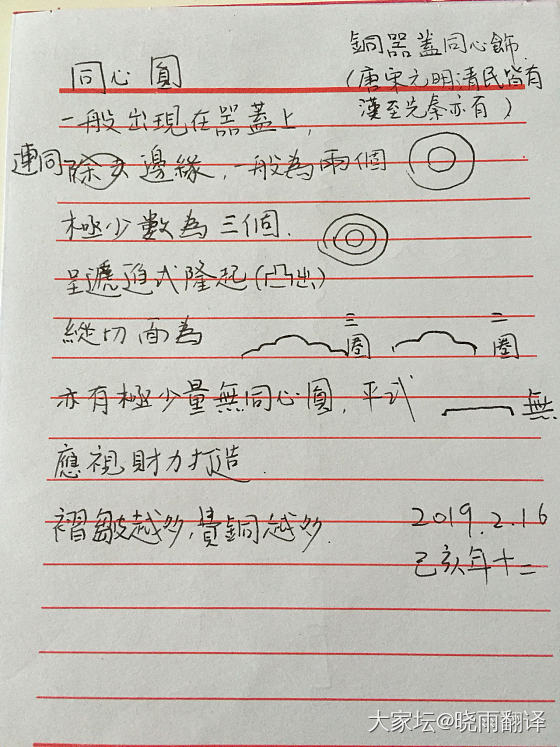 銅器蓋同心飾
同心圓
(唐宋元明清民皆有
漢至先秦亦有)
一般出現在器蓋上,
連同除去邊緣,一般為兩個
極少數為三個.
呈遞進式隆起(凸出)
縱切面為 三圈 二圈
亦有極少量無同心圓,平式 無
應視財力打造.
褶皺越多,費銅越多.
2019.2.16
己亥年十二
大家坛@晓雨翻译